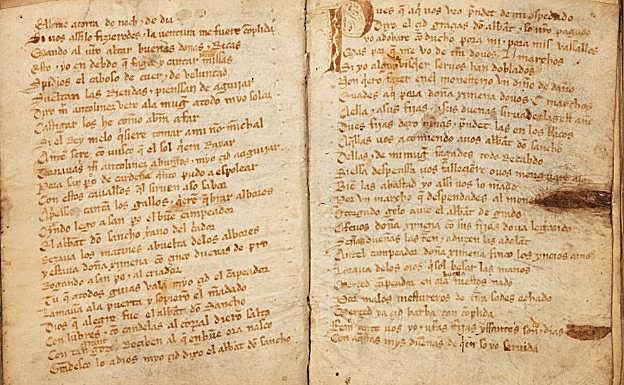 Ella me acorra de noch e de dia
Si vos assi lo fizieredes e la ventura me fuere cõplida
Mando al vro altar buenas donas e Ricas
Esto yo en debdo q faga y cantar missas
Spidios el caboso de cuer e de veluntad
Sueltan las Riendas e pienssan de aguijar
Dixo mīn antolinez vere ala mug atodo myo solaz
Castigar los he como abrã afar
Si el Rey melo qsiere tomar ami nõ michal
Antes sere cõ vusco q el sol qera Rayar
Tornauas mīn antolinez aburgos e myo çid aaguijar
Pora sã pº de cardeña qnto pudo a espolear
Con estos caualłos ql siruen aso sabor
Apriessa cantã los gallos e qerẽ qbrar albores
Qndo lego a san pº el buẽ campeador
El abbat dõ sancho xano del cador
Rezaua los matines abuelta delos albores
y estaua doña ximena cõ çinco dueñas de pro
Rogando a san pº e al criador
Tu q atodos guias val a myo çid el cãpeador
Lamauã ala puerta y sopierõ el mãdado
Dios q alegre fue el abbat dõ sancho
Con lũbres e cõ candelas al corral dierõ salto
Con tan grant gozo Reçiben al q en buẽ ora nasco
Gradesco lo adios myo çid dixo el abbat dõ sancho
Pues q aq uos veo prẽdet de mi ospedado
Dixo el çid graçias dõ abbat e so vro pagado
yo adobare cõ ducho pora mi e pora mis vassallos
Mas por q me vo de trra douos L marchos
Si yo algũ dia visquier seruos han doblados
Non qero fazer enel monesterio vn diño de daño
Euades aq pora doña ximena douos C marchos
Aella e asus fijas e asus dueñas siruades las est año
Dues fijas dexo niñas e prẽdet las en los braços
Aqllas vos acomiendo auos abbat dõ sancho
Dellas e de mi mug fagades todo Recabdo
Si essa despenssa vos falleçiere ouos menguare algo
Biẽ las abastad yo assi vos lo mãdo
Por vn marcho q despendades al monesterio
Otorgado gelo auie el abbat de grado
Afeuos doña ximena cõ sus fijas do ua legando
Señas dueñas las trẽ e aduzen las adelãt
Antel campeador doña ximena finco los ynoios amos
Loraua delos oios qsol besar las manos
Merçed cãpeador en ora buena fuestes nado
Por malos mestureros de trra sodes echado
Merçed ya çid barba tan cõplida
Fem ante vos yo e uras fijas yffantes son e de dias
Con aqstas mys dueñas de qen so yo seruida